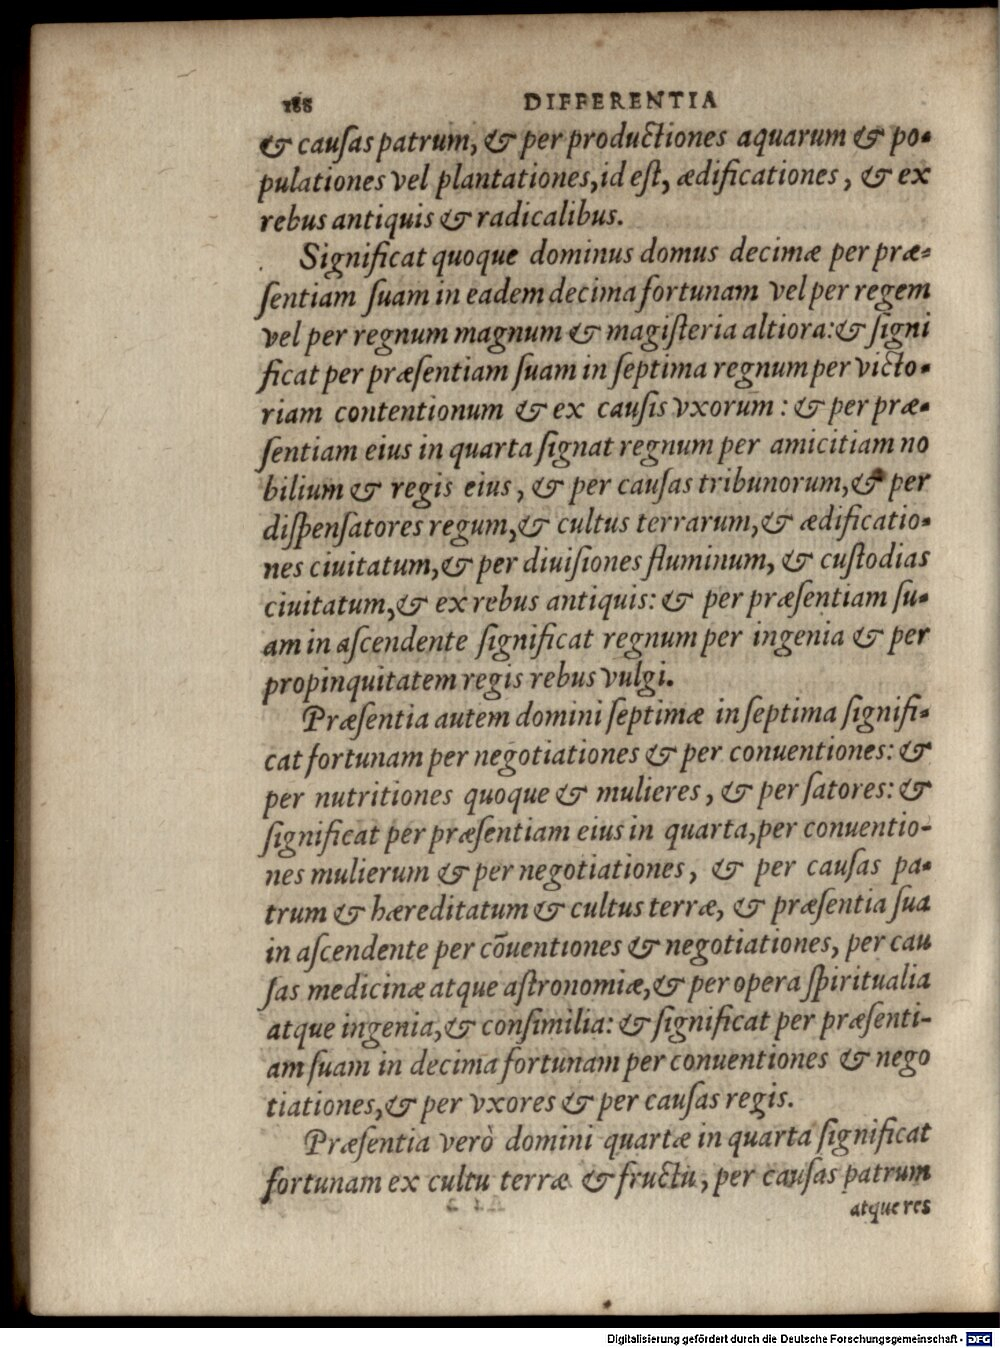 188 DIFFERENTIA
& cauſas patrum, & per productiones aquarum & po-
pulationes vel plantationes, id eſt, ædificationes, & ex
rebus antiquis & radicalibus.
Significat quoque dominus domus decimæ per præ-
ſentiam ſuam in eadem decima fortunam vel per regem
vel per regnum magnum & magiſteria altiora: & ſigni
ficat per præſentiam ſuam in ſeptima regnum per victo-
riam contentionum & ex cauſis vxorum: & per præ-
ſentiam eius in quarta ſignat regnum per amicitiam no
bilium & regis eius, & per cauſas tribunorum, & per
diſpenſatores regum, & cultus terrarum, & ædificatio-
nes ciuitatum, & per diuiſiones fluminum, & cuſtodias
ciuitatum, & ex rebus antiquis: & per præſentiam ſu-
am in aſcendente ſignificat regnum per ingenia & per
propinquitatem regis rebus vulgi.
Præſentia autem domini ſeptimæ in ſeptima ſignifi-
cat fortunam per negotiationes & per conuentiones: &
per nutritiones quoque & mulieres, & per ſatores: &
ſignificat per præſentiam eius in quarta, per conuentio-
nes mulierum & per negotiationes, & per cauſas pa-
trum & hæreditatum & cultus terræ, & præſentia ſua
in aſcendente per cōuentiones & negotiationes, per cau
ſas medicinæ atque aſtronomiæ, & per opera ſpiritualia
atque ingenia, & conſimilia: & ſignificat per præſenti-
am ſuam in decima fortunam per conuentiones & nego
tiationes, & per vxores & per cauſas regis.
Præſentia verò domini quartæ in quarta ſignificat
fortunam ex cultu terræ & fructu, per cauſas patrum
atque res
Digitalisierung gefördert durch die Deutsche Forschungsgemeinschaft - DFG